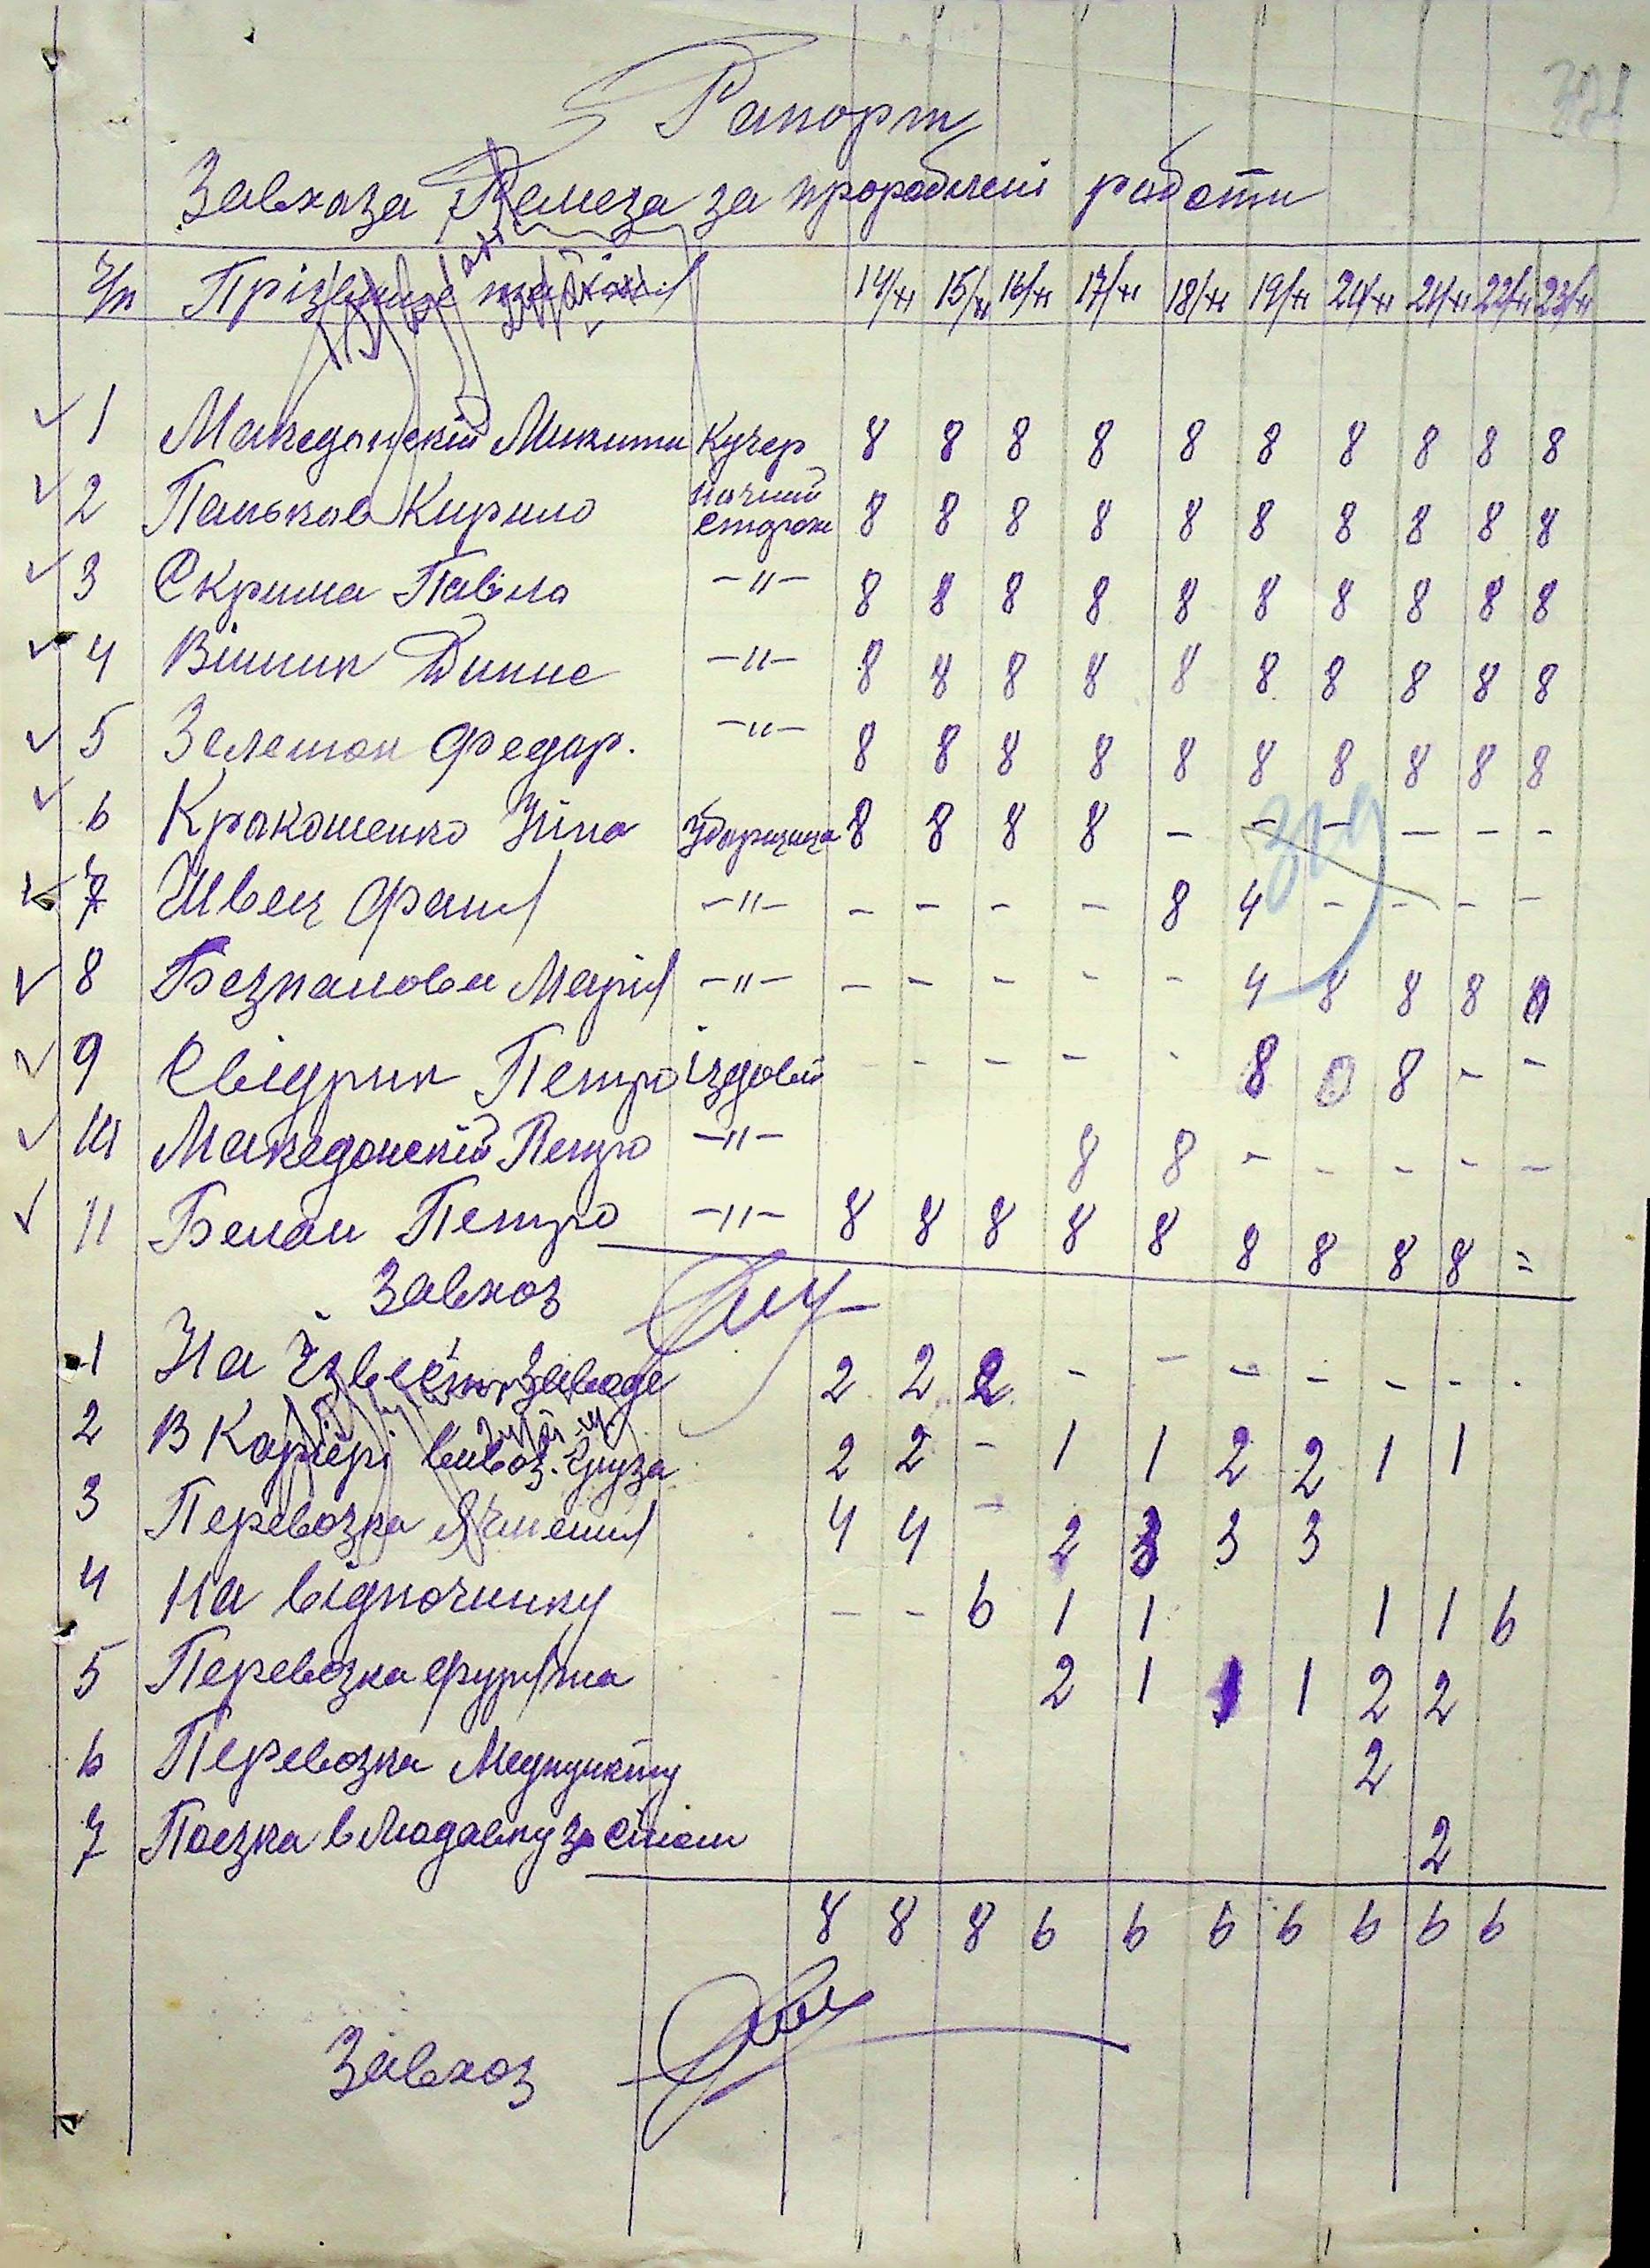 Рапорт
Завхоза Ремеза за пророблені работи
ч/п Прізвище 14/XI 15/XI 16/XI 17/XI 18/XI 19/XI 20/XI 21/XI 22/XI 23/XI
1 Македонскій Микита Кучер 8 8 8 8 8 8 8 8 8 8
2 Паньков Кирило ночний сторож 8 8 8 8 8 8 8 8 8 8
3 Скрипка Павло -"- 8 8 8 8 8 8 8 8 8 8
4 Вінник -"- 8 8 8 8 8 8 8 8 8 8
5 Федор. -"- 8 8 8 8 8 8 8 8 8 8
6 Зіна Уборщица 8 8 8 8 - - - - - -
7 Швец -"- - - - - 8 4 - - - -
8 Марія -"- - - - - - 4 8 8 8 8
9 Свідрик Петро іздовій - - - - - 8 0 8 - -
10 Македонскій Петро -"- 8 8 - - - - -
11 Белан Петро -"- 8 8 8 8 8 8 8 8 8 =
Завхоз
1 На Ізвестк. заводе 2 2 2 - - - - - - -
2 В Карєрі вивоз. груза 2 2 - 1 1 2 2 1 1
3 Перевозка Ячменя 4 4 - 2 3 3 3
4 На відпочинку - - 6 1 1 1 1 6
5 Перевозка фуража 2 1 1 1 2 2
6 Перевозка Медпункту 2
7 Поезка в за сіном 2
8 8 8 6 6 6 6 6 6 6
Завхоз